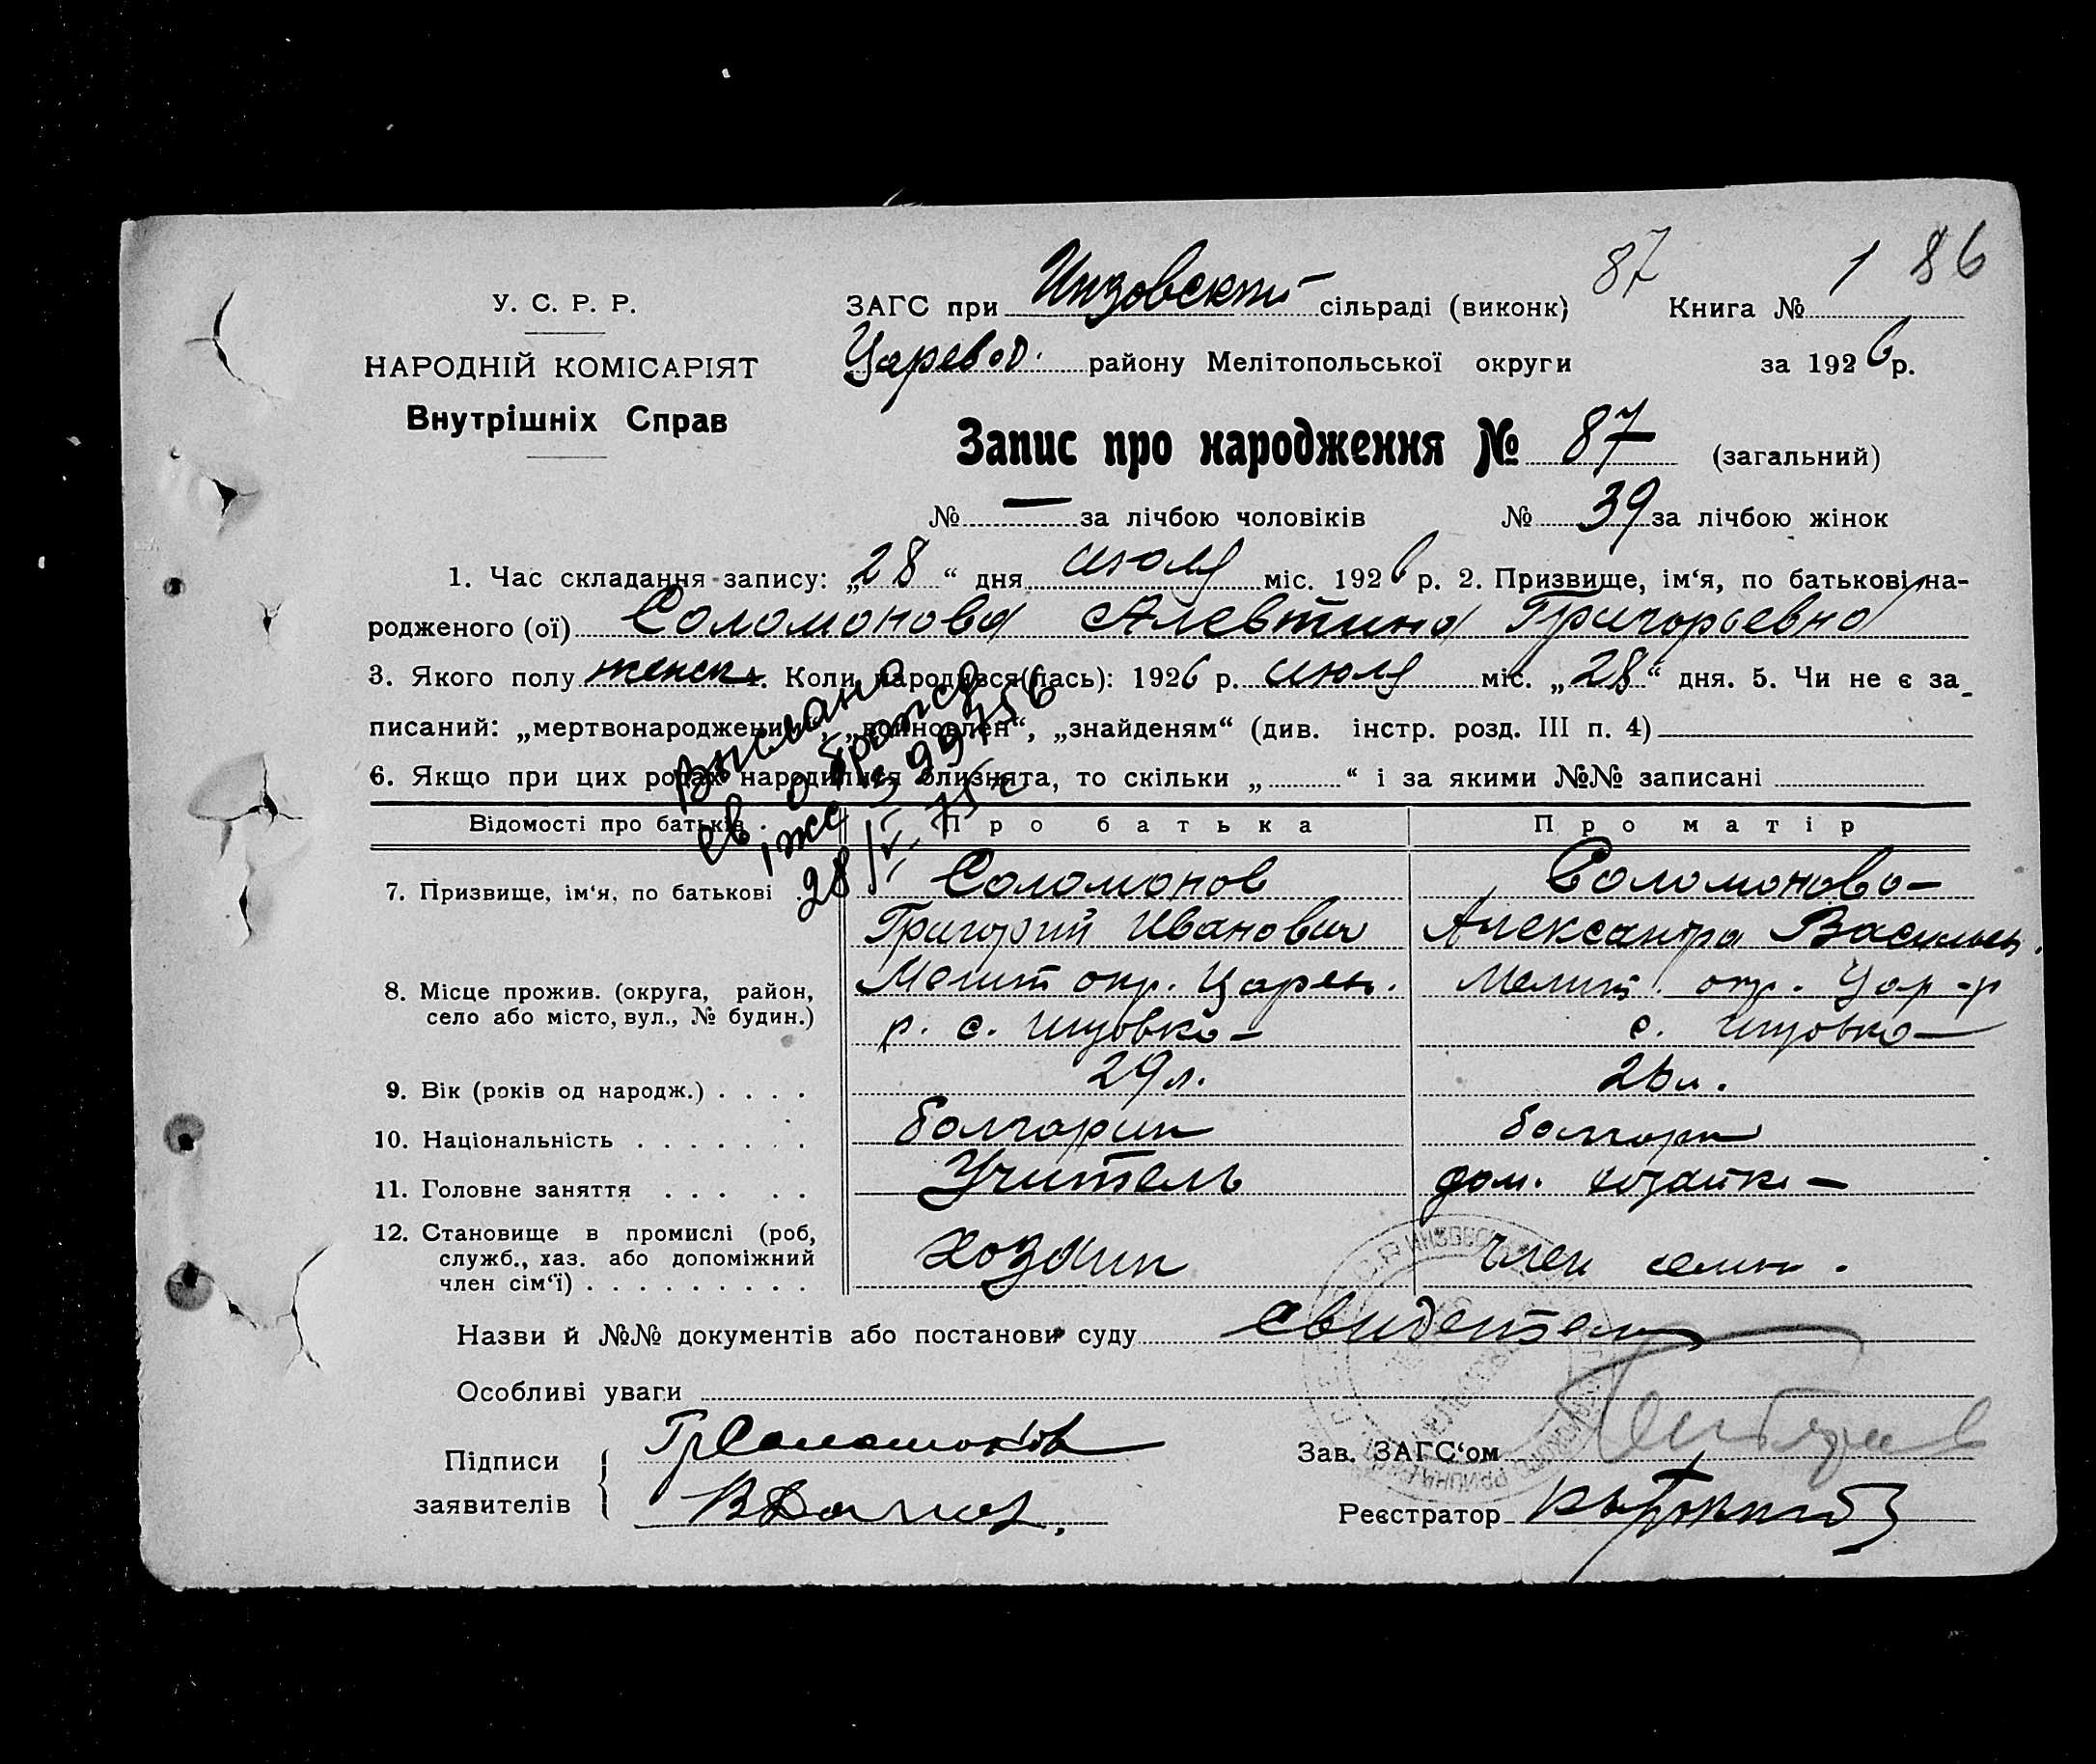 87 1 86
У. С. Р. Р.
ЗАГС при Инзовский сільраді (виконк) Книга №
НАРОДНІЙ КОМІСАРІЯТ
Царевод. району Мелітопольської округи за 1926 р.
Внутрішніх Справ
Запис про народження № 87 (загальний)
№ — за лічбою чоловіків № 39 за лічбою жінок
1. Час складання запису: „28“ дня июля міс. 1926 р. 2. Призвище, ім‘я, по батькові на-
родженого (ої) Соломонова Алевтина Григорьевна
3. Якого полу женск 4. Коли народився(лась): 1926 р. июля міс. „28“ дня. 5. Чи не є за-
писаний: „мертвонароджений“, „знайденям“ (див. інстр. розд. III п. 4)
6. Якщо при цих родах народилися близнята, то скільки „ “ і за якими №№ записані
Выслано
св. о рожд
28/
Відомості про батьків Про батька Про матір
7. Призвище, ім‘я, по батькові Соломонов Соломонова
Григорий Иванович Александра Васильев.
8. Місце прожив. (округа, район, Мелит окр. Царев. Мелит. окр. Цар-р
село або місто, вул., № будин.) р. с. Инзовка с. Инзовка
9. Вік (років од народж.) . . . . 29 л. 26 л.
10. Національність . . . . . . . болгарин болгарк
11. Головне заняття . . . . . Учитель дом. хозяйка
12. Становище в промислі (роб,
служб., хаз. або допоміжний Хозяин член семьи.
член сім‘ї) . . . . . . . . .
Назви й №№ документів або постанови суду свидетели
Особливі уваги
Підписи ГрСоломонов Зав. ЗАГС‘ом
заявителів Реєстратор